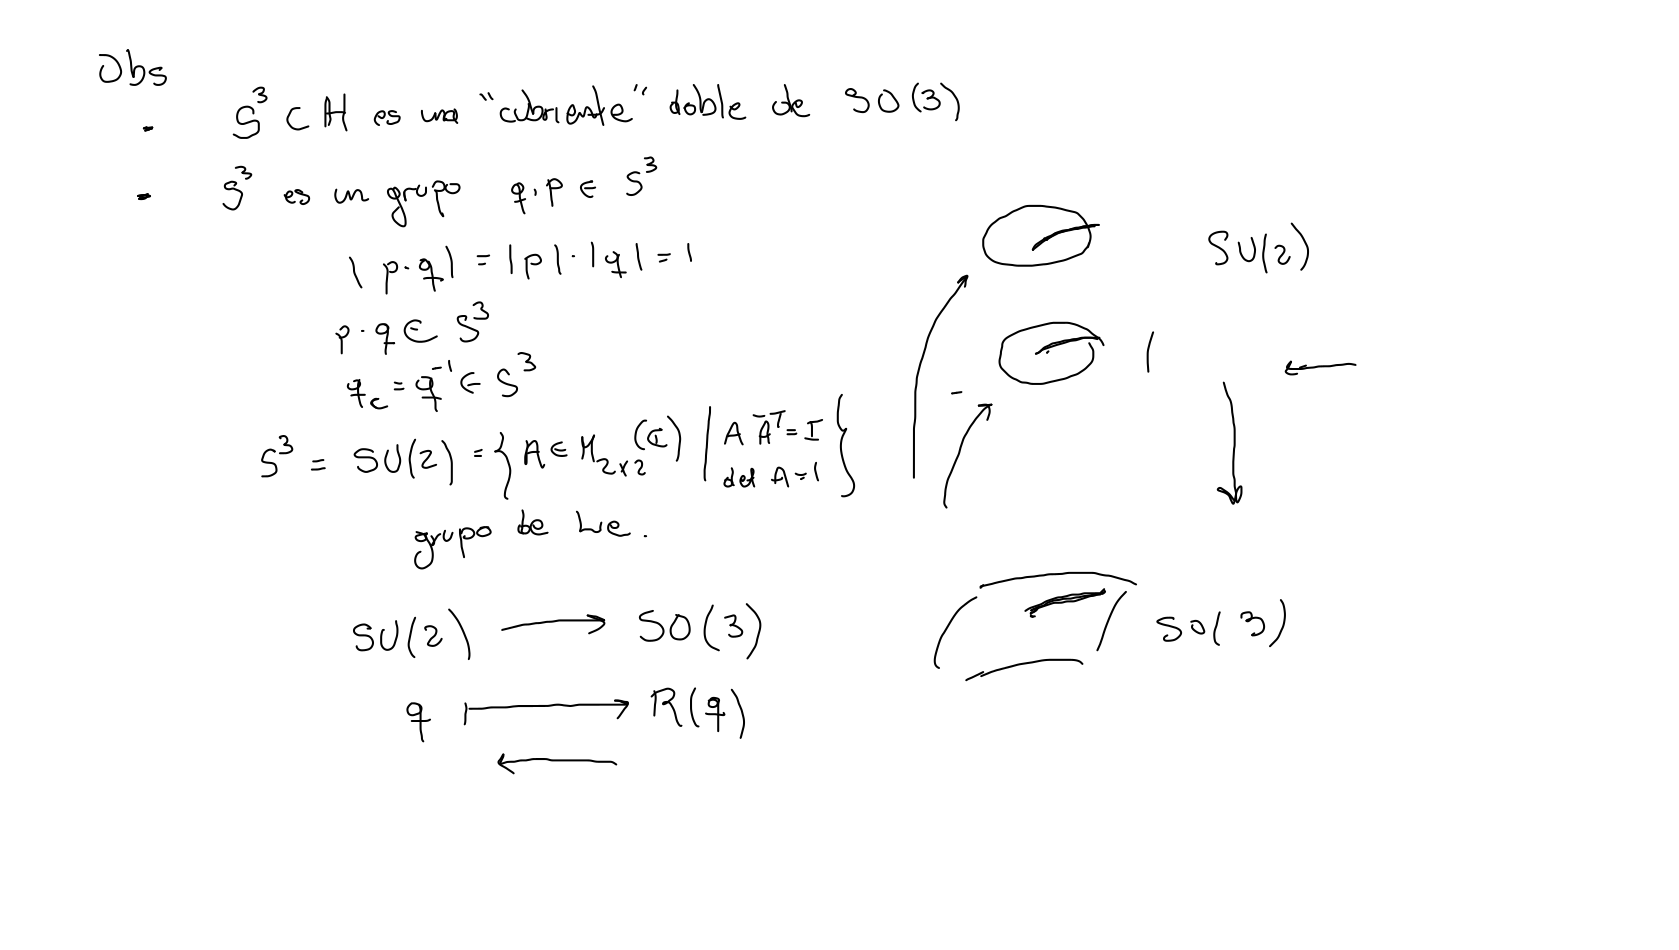 Obs
- S³ ⊂ ℍ es una "cubriente" doble de SO(3)
- S³ es un grupo q, p ∈ S³
|p·q| = |p|·|q| = 1
p·q ∈ S³
q_c = q⁻¹ ∈ S³
S³ = SU(2) = {A ∈ M_{2×2}(ℂ) | A Ā^T = I det A = 1}
grupo de Lie.
SU(2) ⟶ SO(3)
q ⟼ R(q)
⟵
SU(2)
SO(3)